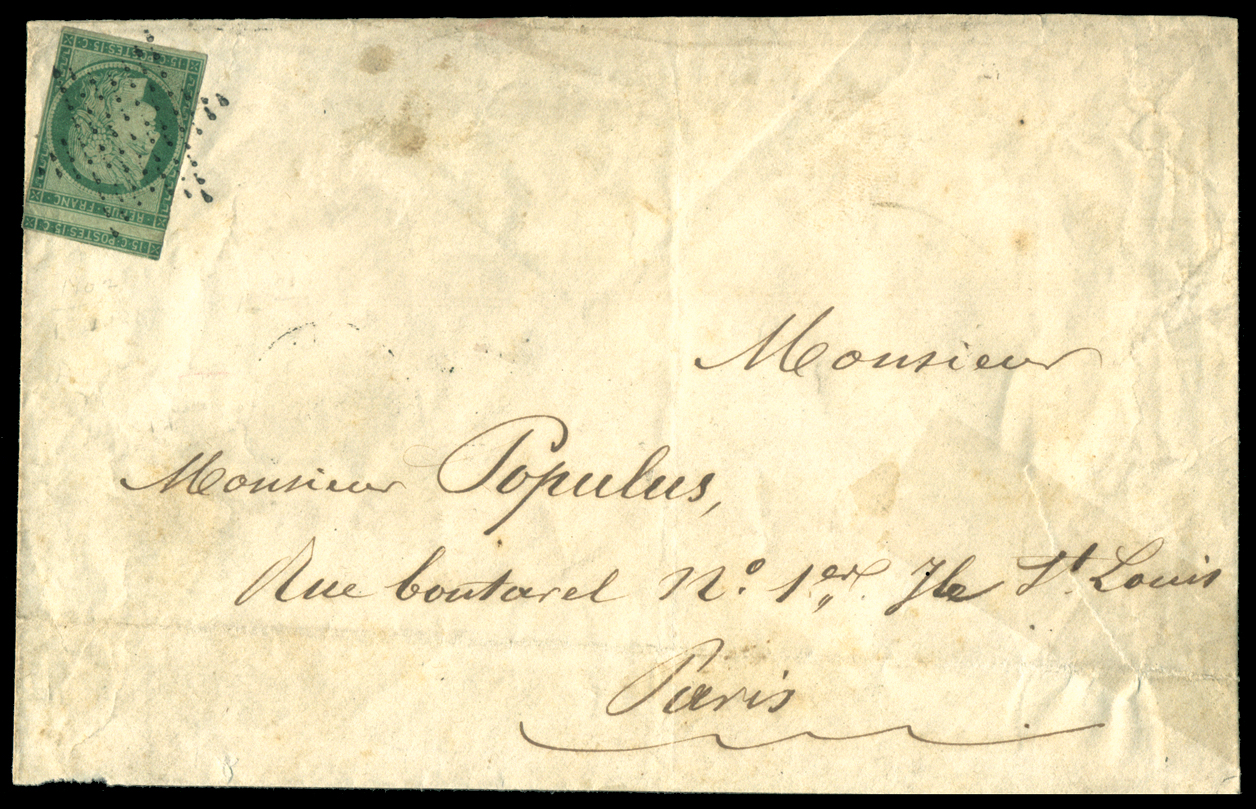 15 · C · POSTES · 15 · C
REPUB · FRANC
15 · C · POSTES · 15 · C
Monsieur
Monsieur Populus,
Rue boutarel N.º 1.er Ile St. Louis
Paris